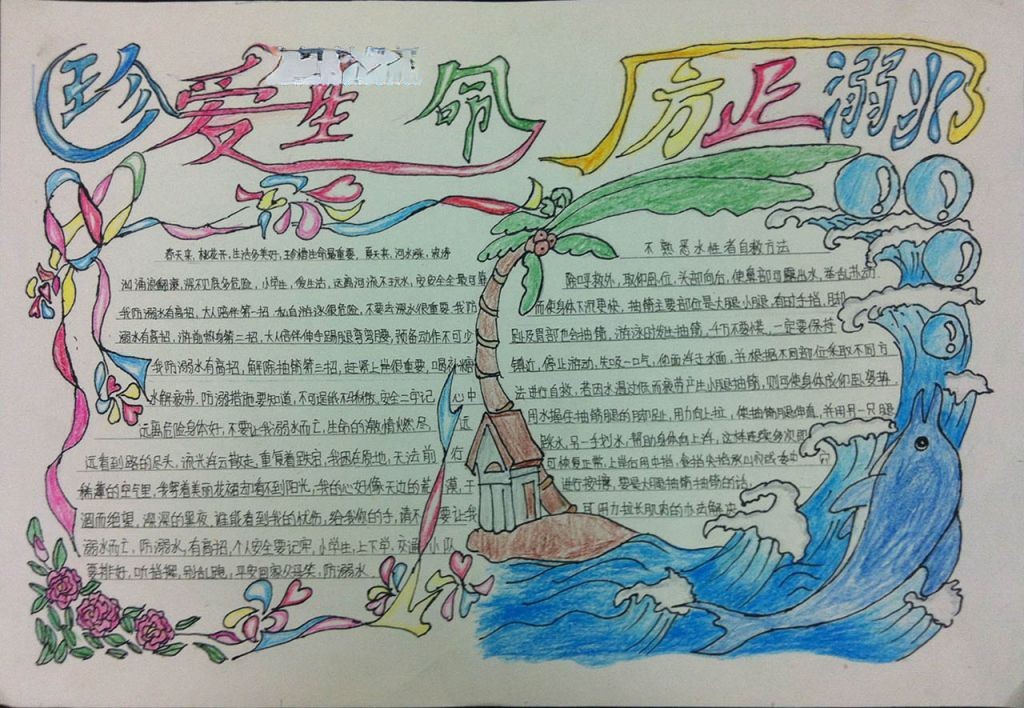 珍爱生命 防止溺水
春天来,桃花开,生活多美好,珍惜生命最重要,夏天来,河水涨,波涛
汹涌浪翻滚,深不见底多危险,小学生,爱生活,远离河流不玩水,安安全全最可靠
我防溺水有高招,大人陪伴第一招,私自游泳很危险,不要去深水很重要,我防
溺水有高招,游前热身第二招,大人陪伴伸手踢腿弯弯腰,预备动作不可少
我防溺水有高招,解除抽筋第三招,赶紧上岸很重要,喝杯糖
水解疲劳,防溺措施要知道,不可误纸不纵身,安全二字记心中
远离危险身体好,不要让我溺水而亡,生命的激情燃尽,远
远看到路的尽头,流光浮云散走,重复着跌宕,我困在原地,无法前行
稀薄的空气里,我穿着美丽花裙却看不到阳光,我的心好像天边的荒漠,干
涸而绝望,深深的黑夜,谁能看到我的忧伤,给我你的手,请不要让我
溺水而亡,防溺水,有高招,个人安全要记牢,小学生,上下学,交通小队
要排好,听指挥,别乱跑,平安回家父母笑,防溺水
不熟悉水性者自救方法
除呼救外,取仰卧位,头部向后,使鼻部可露出水,若乱动动
而使身体下沉更快,抽筋主要部位是大腿小腿,有时手指,脚
趾及胃部也会抽筋,游泳时发生抽筋,千万不要慌,一定要保持
镇定,停止游动,先吸一口气,仰面浮于水面,并根据不同部位采取不同方
法进行自救,若因水温过低而疲劳产生小腿抽筋,则可使身体成仰卧姿势
用水握住抽筋腿的脚趾,用力向上拉,使抽筋腿伸直,并用另一只腿
踩水,另一手划水,帮助身体向上浮,这样连续多次即
可恢复正常,上岸后用中指,食指尖掐承山穴或委中穴
进行按摩,要是大腿抽筋抽筋的话
耳用力拉长肌肉的办法解决